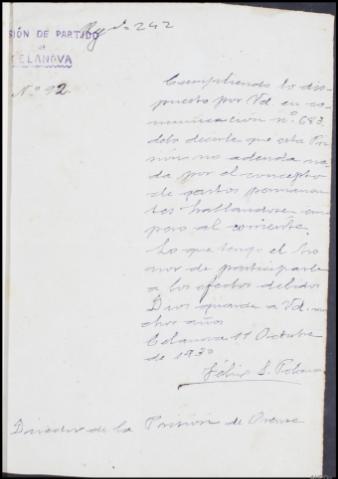 Rgdo 242
SIÓN DE PARTIDO
DE
CELANOVA
Nº 92
Cumpliendo lo dis-
puesto por Vd en co-
municación nº 683
debo decirle que esta Pri-
sión no adeuda na-
da por el concepto
de gastos permanen-
tes hallandose
al corriente.
Lo que tengo el ho-
nor de participarle
a los efectos debidos
Dios guarde a Vd. mu-
chos años
Celanova 11 Octubre
de 1930
Félix S.
Director de la Prisión de Orense